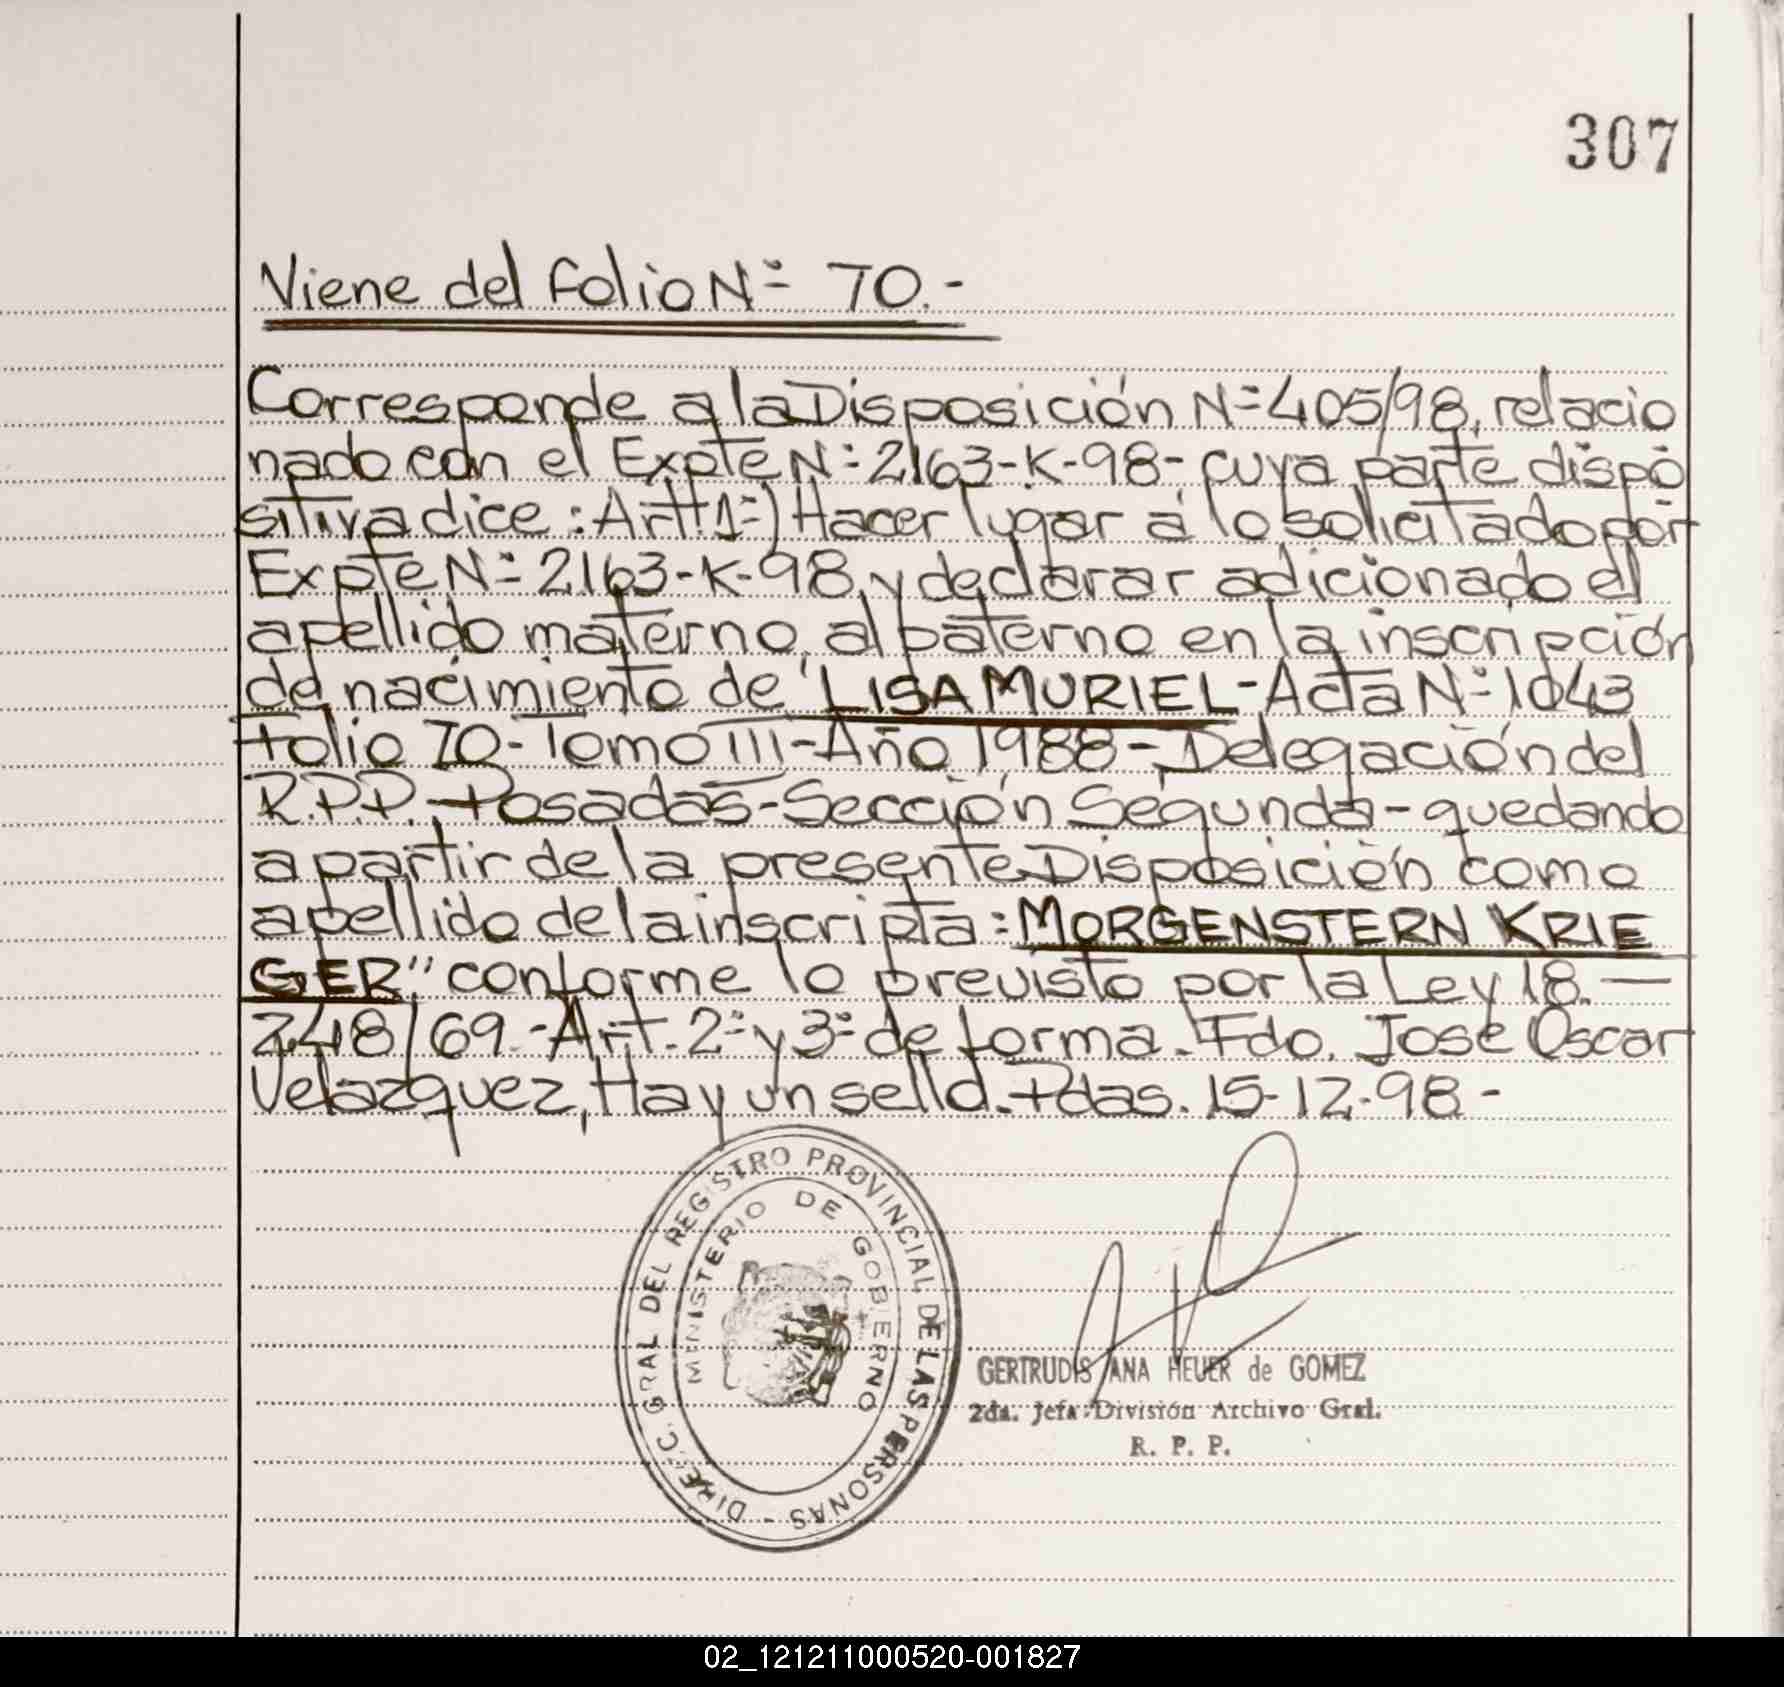 307
Viene del folio Nº 70.-
Corresponde a la Disposición Nº 405/98, relacio
nado con el Expte Nº 2163-K-98- cuya parte dispo
sitiva dice: Artº 1º) Hacer lugar a lo solicitado por
Expte Nº 2163-K-98, y declarar adicionado el
apellido materno, al paterno en la inscripción
de nacimiento de "LISA MURIEL-Acta Nº 1043
Folio 70-Tomo III-Año 1988-Delegación del
R.P.P.-Posadas-Sección Segunda-quedando
a partir de la presente Disposición como
apellido de la inscripta: MORGENSTERN KRIE
GER", conforme lo previsto por la Ley 18.—
248/69.-Art. 2º y 3º de forma. Fdo. José Oscar
Velazquez, Hay un sello. Pdas. 15-12-98-
DIREC. GRAL DEL REGISTRO PROVINCIAL DE LAS PERSONAS -
MINISTERIO DE GOBIERNO
GERTRUDIS ANA HEUER de GOMEZ
2da. Jefa División Archivo Gral.
R. P. P.
02_121211000520-001827